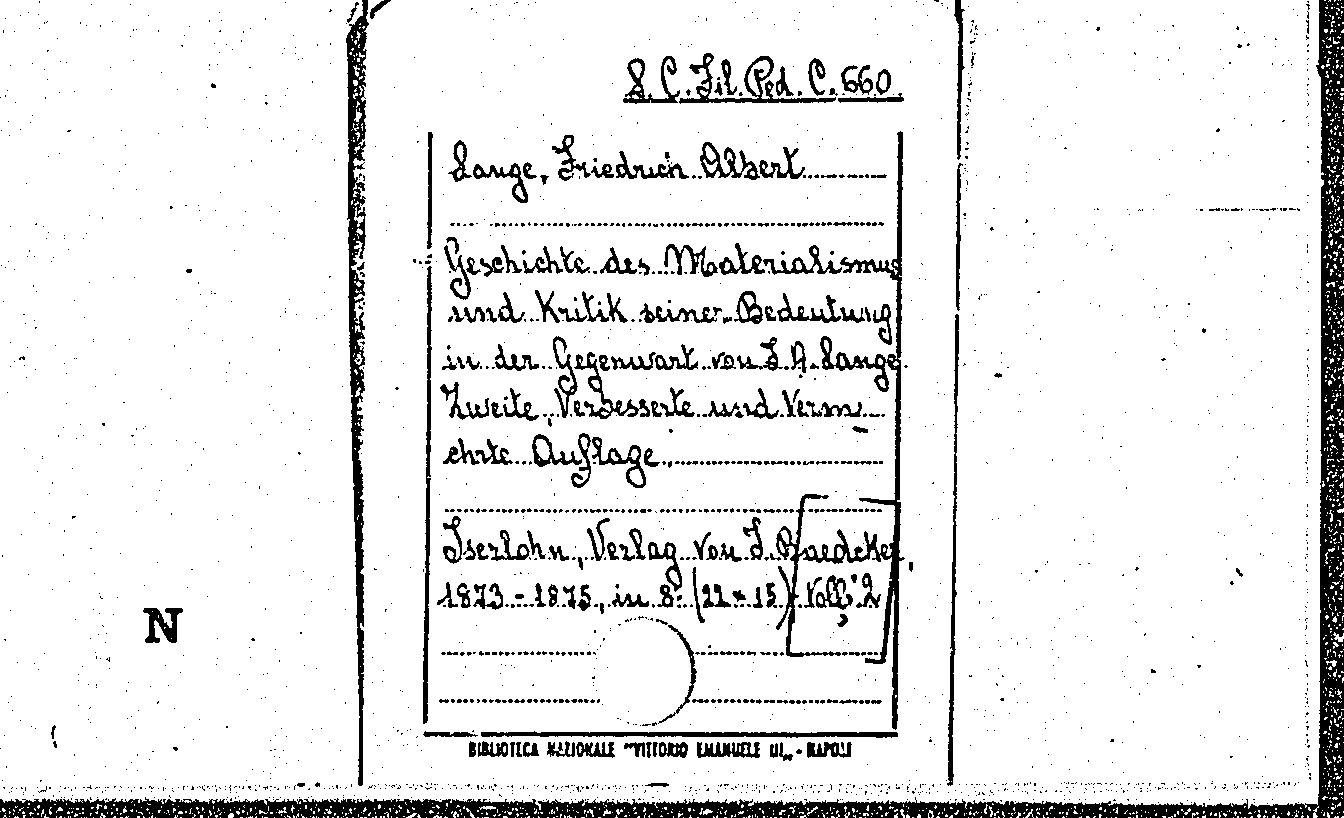 S. C. Fil. Ped. C. 660.
Lange, Friedrich Albert
Geschichte des Materialismus
und Kritik seiner Bedeutung
in der Gegenwart von F. A. Lange
Zweite, Verbesserte und Verm
ehrte Auflage.
Iserlohn, Verlag von J. Baedeker,
1873 - 1875, in 8° (22 x 15) Voll. 2
N
BIBLIOTECA NAZIONALE "VITTORIO EMANUELE III„ - NAPOLI